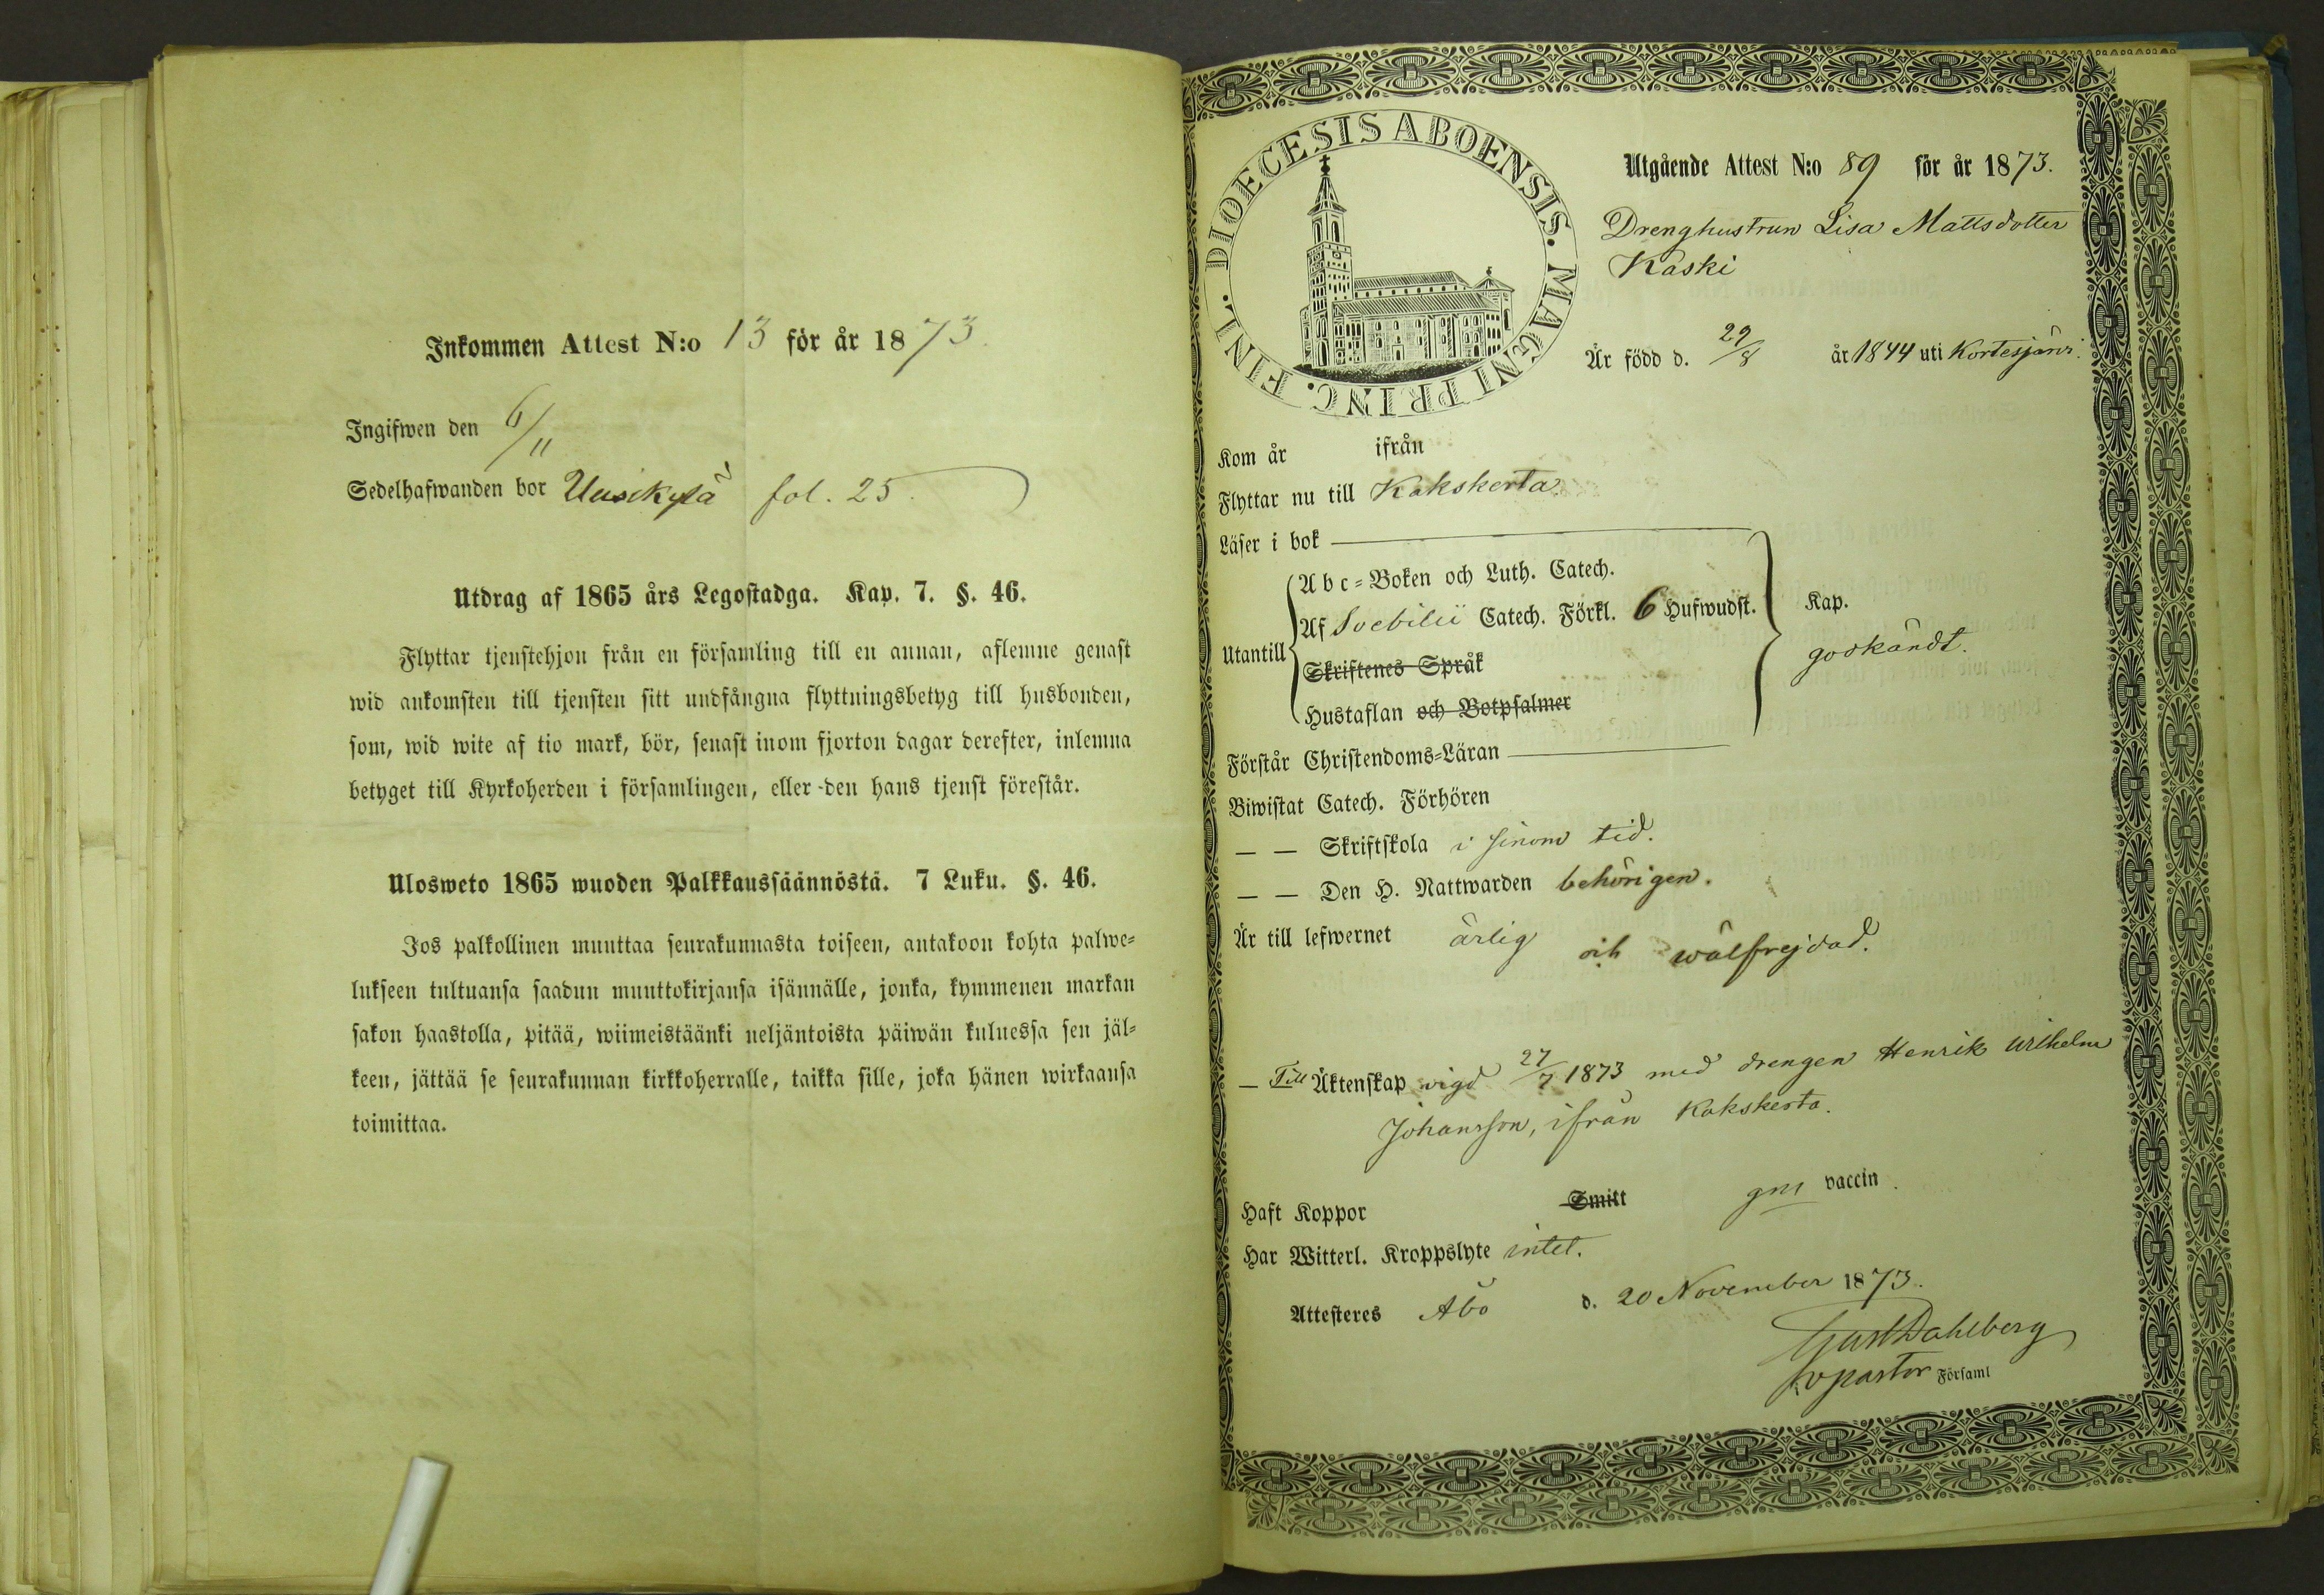 Inkommen Attest N:o 13 för år 1873.
Ingifwen den 6/11
Sedelhafwanden bor Uusikylä fol. 25.
Utdrag af 1865 års Legostadga. Kap. 7. §. 46.
Flyttar tjenstehjon från en församling till en annan, aflemne genast
wid ankomsten till tjensten sitt undfångna flyttningsbetyg till husbonden,
som, wid wite af tio mark, bör, senast inom fjorton dagar derefter, inlemna
betyget till Kyrkoherden i församlingen, eller den hans tjenst förestår.
Ulosweto 1865 wuoden Palkkaussäännöstä. 7 Luku. §. 46.
Jos palkollinen muuttaa seurakunnasta toiseen, antakoon kohta palwe-
lukseen tultuansa saadun muuttokirjansa isännälle, jonka, kymmenen markan
sakon haastolla, pitää, wiimeistäänki neljäntoista päiwän kuluessa sen jäl-
keen, jättää se seurakunnan kirkkoherralle, taikka sille, joka hänen wirkaansa
toimittaa.
DIOECESIS ABOENSIS. MAGNI PRINC. FINL.
Utgående Attest N:o 89 för år 1873.
Drenghustrun Lisa Mattsdotter
Kaski
Är född d. 29/8 år 1844 uti Kortesjärvi.
Kom år ifrån
Flyttar nu till Kakskerta
Läser i bok
Abc-Boken och Luth. Catech.
Af Svebilii Catech. Förkl. 6 Hufwudst. Kap.
Utantill
Skriftenes Språk godkändt.
Hustaflan och Botpsalmer
Förstår Christendoms-Läran
Biwistat Catech. Förhören
— — Skriftskola i sinom tid.
— — Den H. Nattwarden behörigen.
Är till lefwernet ärlig och wälfrejdad.
— Till Äktenskap vigd 27/7 1873 med drengen Henrik Wilhelm
Johansson, ifrån Kakskerta.
Haft Koppor Smitt gm vaccin.
Har Witterl. Kroppslyte intet.
Attesteres Åbo d. 20 November 1873.
Gust Dahlberg
vpastor Församl